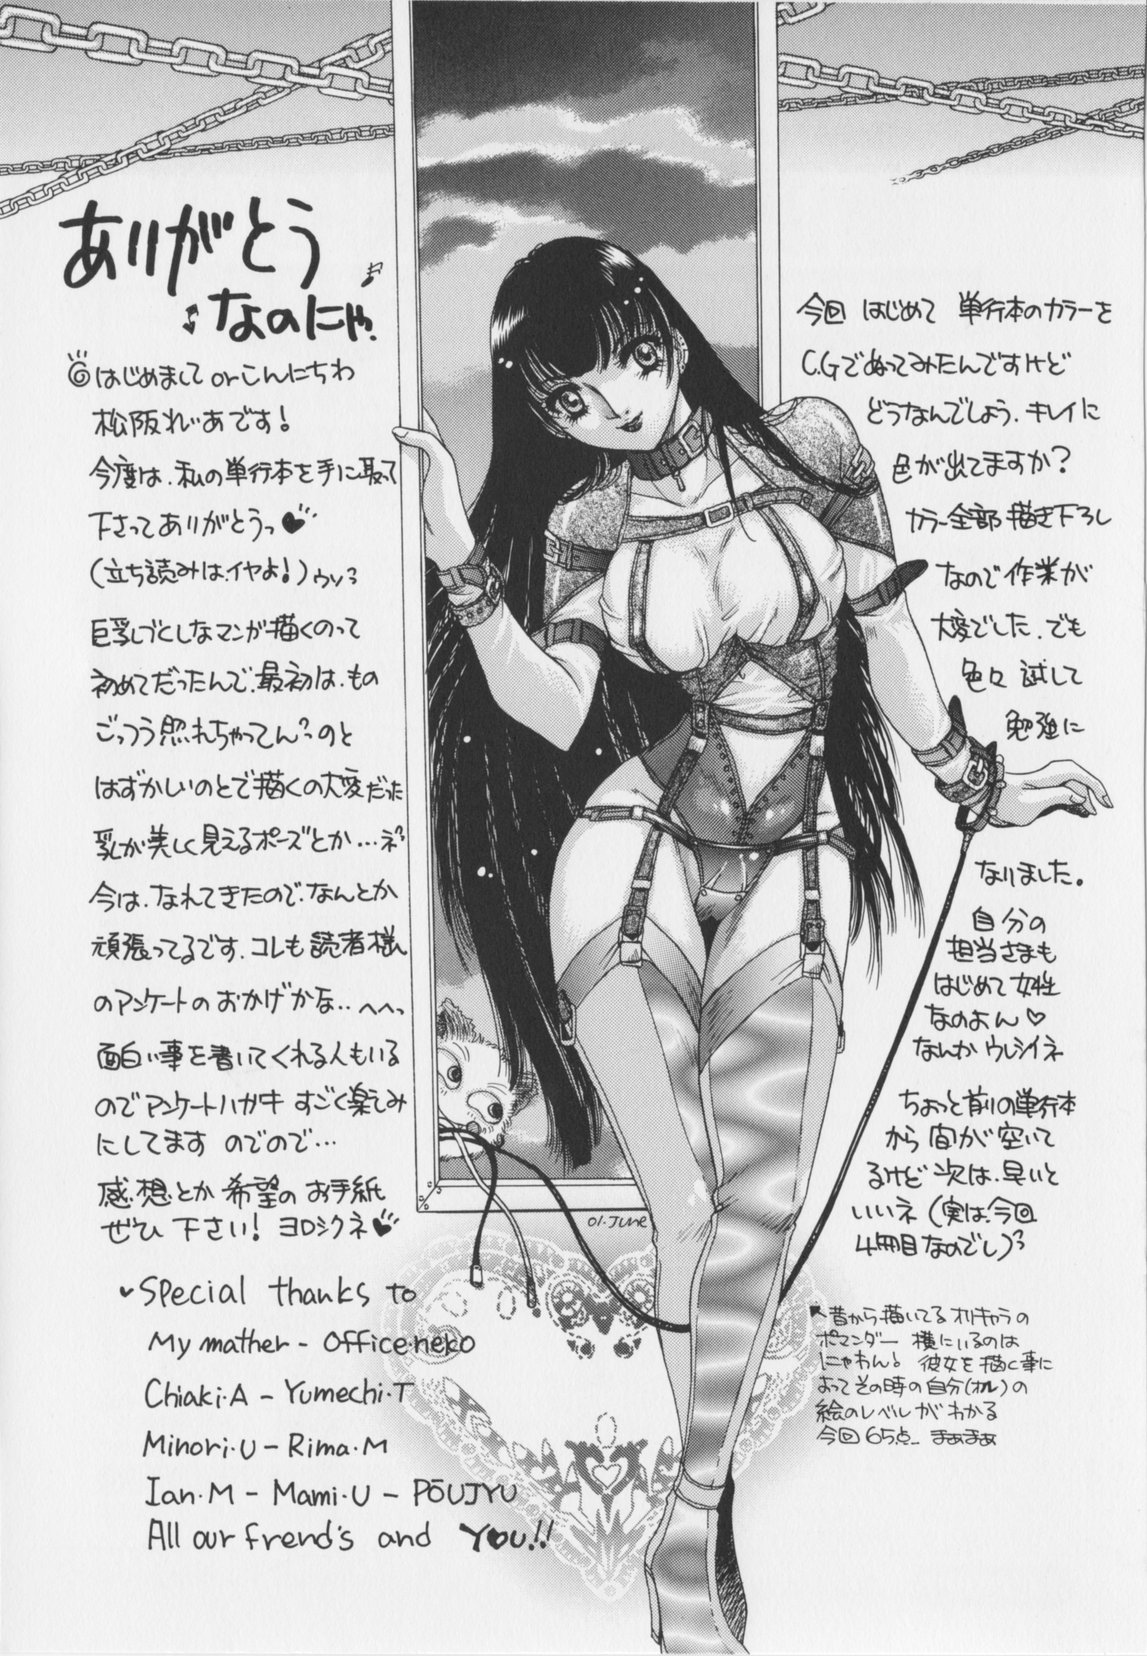 ありがとう
なのにゃ。
はじめまして orこんにちわ
松阪れいあです!
今度は、私の単行本を手に取って
下さってありがとうっ
(立ち読みは、イヤよ!)ウソ
巨乳づくしなマンガ描くのって
初めてだったんで、最初は、もの
ごっつう照れちゃってん のと
はずかしいのとで描くの大変だった
乳が美しく見えるポーズとか…ネ
今は、なれてきたので、なんとか
頑張ってるです、コレも読者様ん
のアンケートのおかげかな..へへっ
面白い事を書いてくれる人もいる
のでアンケートハガキ すごく楽しみ
にしてます のでので…
感想とか希望のお手紙
ぜひ下さい! ヨロシクネ
Special thanks to
My mather - Office・neko
Chiaki・A - Yumechi・T
Minori・U - Rima・M
Ian・M - Mami・U - PōUJYU
All our frend's and YOU!!
01.June
今回 はじめて 単行本のカラーを
C.Gでぬってみたんですけど
どうなんでしょう、キレイに
色が出てますか?
カラー全部描き下ろし
なので作業が
大変でした、でも
色々 試して
勉強に
なりました。
自分の
担当さまも
はじめて女性
なのよん♡
なんかウレシイネ
ちょっと前の単行本
から間が空いて
るけど次は、早いと
いいネ(実は、今回
4冊目なのでし)
昔から描いてるオリキャラの
ポマンダー 横にいるのは
にゃわん♪ 彼女を描く事に
よってその時の自分(オレ)の
絵のレベルがわかる
今回65点_ まぁまぁ